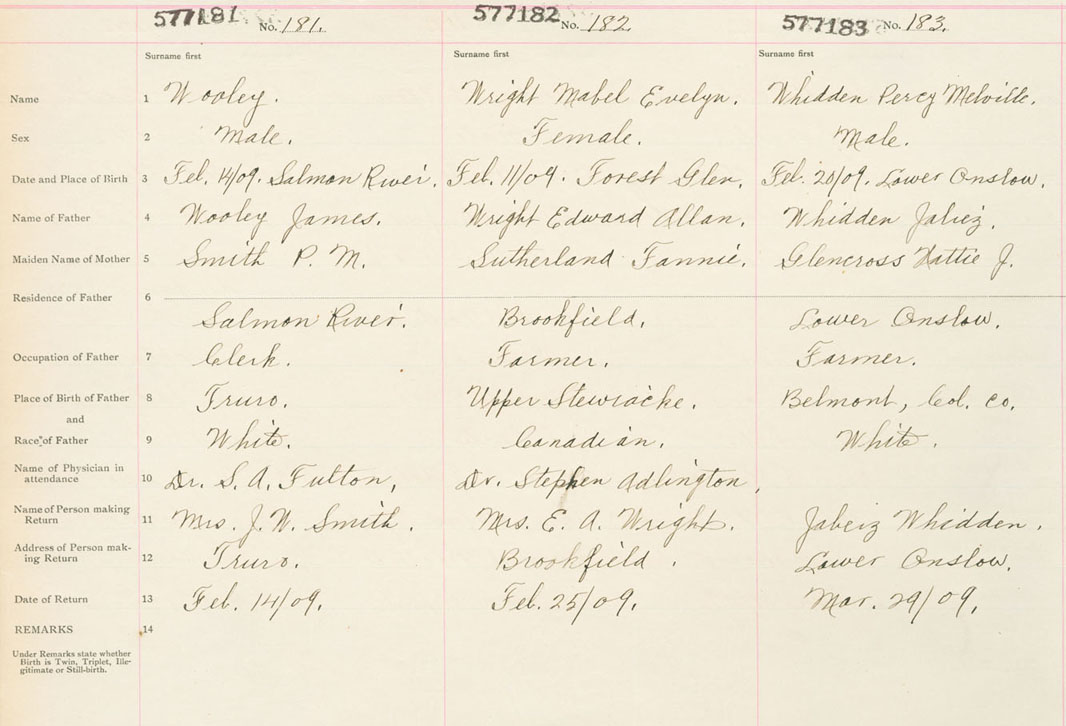 577181 No. 181. 577182 No. 182. 577183 No. 183.
Surname first Surname first Surname first
Name 1 Wooley. Wright Mabel Evelyn. Whidden Percy Melville.
Sex 2 Male. Female. Male.
Date and Place of Birth 3 Feb. 14/09. Salmon River. Feb. 11/09. Forest Glen. Feb. 20/09. Lower Onslow.
Name of Father 4 Wooley James. Wright Edward Allan. Whidden Jabiez.
Maiden Name of Mother 5 Smith P. M. Sutherland Fannie. Glencross Hattie J.
Residence of Father 6
Salmon River. Brookfield. Lower Onslow.
Occupation of Father 7 Clerk. Farmer. Farmer.
Place of Birth of Father 8 Truro. Upper Stewiacke. Belmont, Col. Co.
and
Race of Father 9 White. Canadian. White.
Name of Physician in
attendance 10 Dr. S. A. Fulton, Dr. Stephen Adlington,
Name of Person making
Return 11 Mrs. J. W. Smith. Mrs. E. A. Wright. Jabeiz Whidden.
Address of Person mak-
ing Return 12 Truro. Brookfield. Lower Onslow.
Date of Return 13 Feb. 14/09. Feb. 25/09. Mar. 29/09.
REMARKS 14
Under Remarks state whether
Birth is Twin, Triplet, Ille-
gitimate or Still-birth.